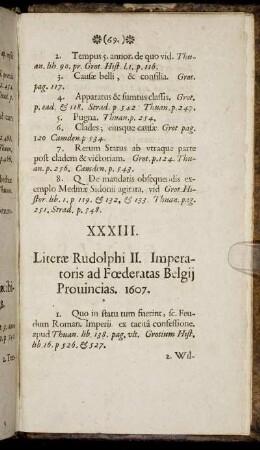 ❋(69.)❋
2. Tempus 5. annor. de quo vid. Thu-
an. lib 90. pr. Grot. Hist. l. 1. p. 116.
3. Causæ belli, & consilia. Grot.
pag. 117.
4. Apparatus & sumtus classis. Grot.
p. ead. & 118. Strad. p. 542 Thuan. p. 247.
5. Pugna. Thuan. p. 254.
6. Clades; eiusque causæ Grot pag.
120 Camden p. 534.
7. Rerum Status ab vtraque parte
post cladem & victoriam. Grot. p. 124. Thu-
an. p. 256. Camden. p. 543.
8. Q De mandatis obsequendis ex-
emplo Medinæ Sidonii agitata, vid Grot. Hi-
stor. lib. 1. p 119. & 132, & 133 Thuan. pag.
251. Strad. p. 548.
XXXIII.
Literæ Rudolphi II. Impera-
toris ad Fœderatas Belgij
Prouincias. 1607.
1. Quo in statu tum fuerint, sc. Feu-
dum Roman. Imperii ex tacitâ confessione.
apud Thuan. lib. 138. pag. vlt. Grotium Hist.
lib 16. p 526. & 527.
2. Wil-